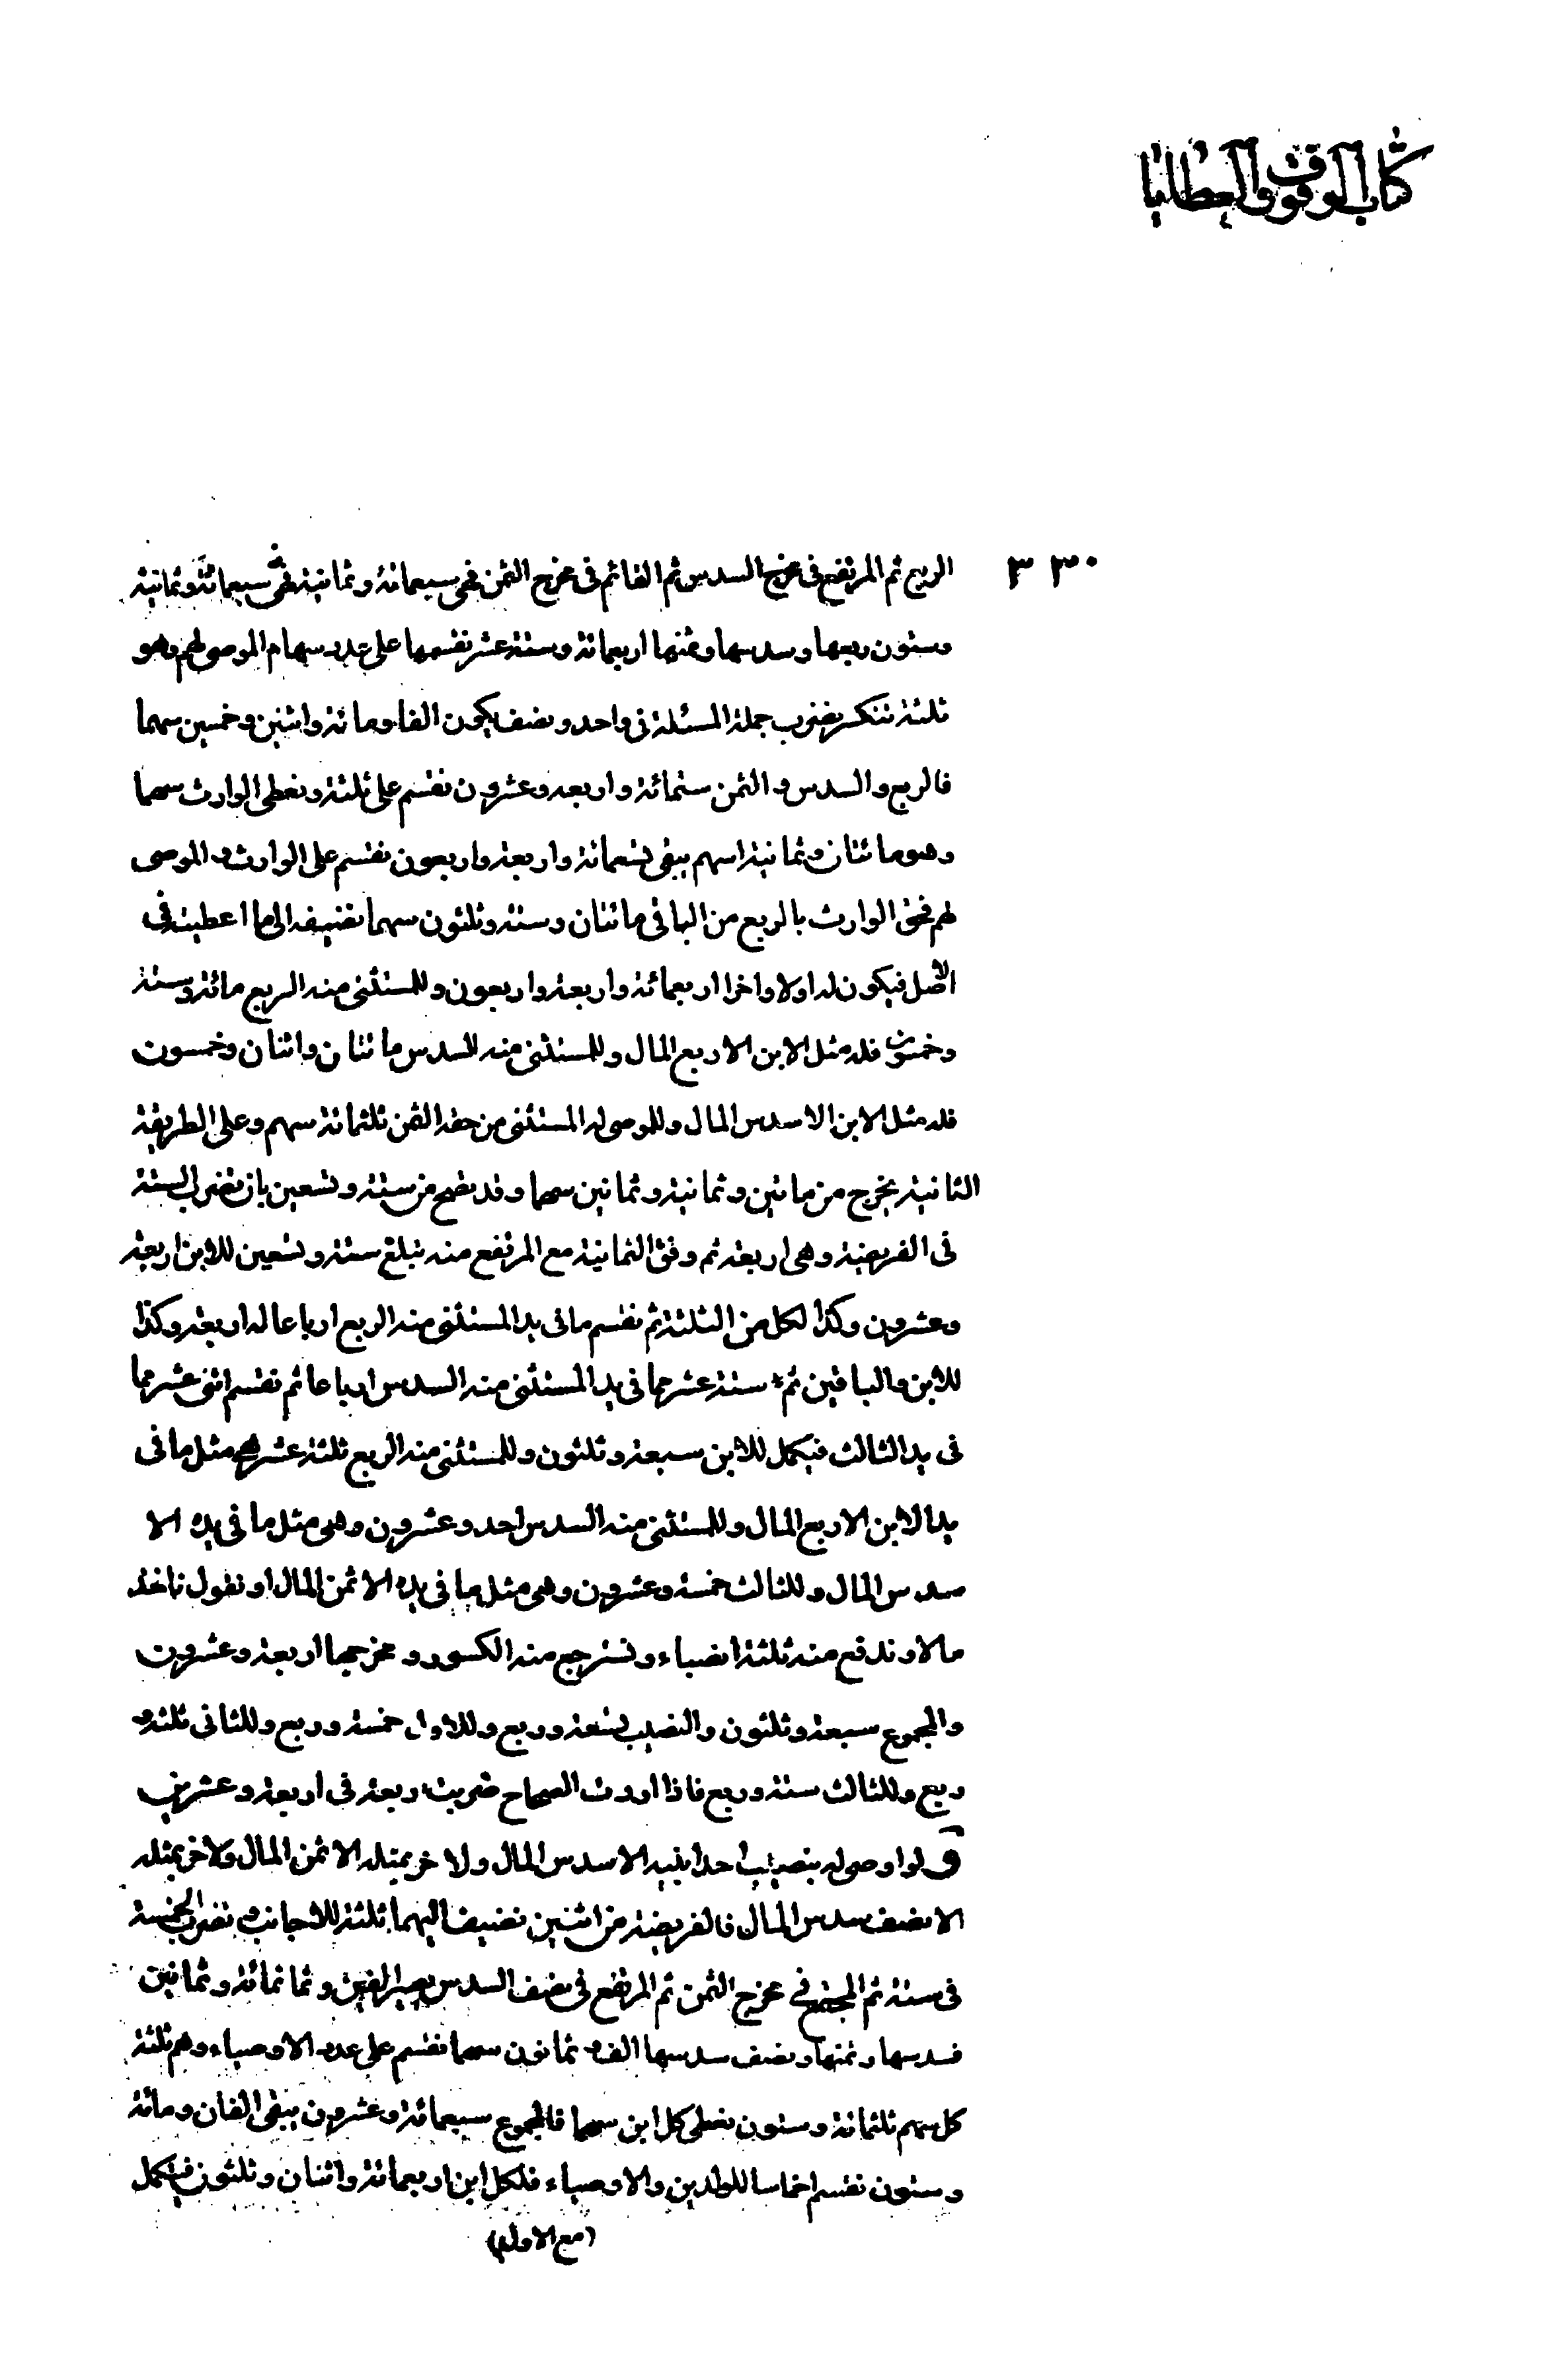 كتاب الوقوف والعطايا
٣٣٠
الربع ثم المرتفع فى مخرج السدس ثم القائم فى مخرج الثمن فهى سبعمائة وثمانية فهى سبعمائة وثمانية
وستون ربعها وسدسها وثمنها اربعمائة وستة عشر نقسمها على عدد سهام الموصى لهم وهو
ثلثة تنكسر يضرب جملة المسئلة فى واحد ونصف يكون الفا ومائة واثنين وخمسين سهما
فالربع والسدس والثمن ستمائة واربعة وعشرون نقسم على ثلثة ونعطى الوارث سهما
وهو مائتان وثمانية اسهم يبقى تسعمائة واربعة واربعون نقسم على الوارث والموصى
لهم فحق الوارث بالربع من الباقى مائتان وستة وثلثون سهما نضيفه الى ما اعطيته فى
الاصل فيكون له اولا واخرا اربعمائة واربعة واربعون وللمستثنى منه الربع مائة وستة
وخمسون فله مثل الابن الا ربع المال وللمستثنى منه السدس مائتان واثنان وخمسون
فله مثل الابن الا سدس المال وللموصى له المستثنى من حقه الثمن ثلثمائة سهم وعلى الطريقة
الثانية يخرج من مائتين وثمانية وثمانين سهما وقد تصح من ستة وتسعين بان نضرب الستة
فى الفريضة وهى اربعة ثم وفق الثمانية مع المرتفع منه تبلغ ستة وتسعين للابن اربعة
وعشرون وكذا لكل من الثلثة ثم نقسم ما فى يد المستثنى منه الربع ارباعا له اربعة وكذا
للابن والباقين ثم ستة عشر مما فى يد المستثنى منه السدس ارباعا ثم نقسم اثنى عشر مما
فى يد الثالث فيكمل للابن سبعة وثلثون وللمستثنى منه الربع ثلثة عشر هى مثل ما فى
يد الابن الا ربع المال وللمستثنى منه السدس احد وعشرون وهى مثل ما فى يده الا
سدس المال وللثالث خمسة وعشرون وهى مثل ما فى يده الا ثمن المال او نقول ناخذ
مالا وندفع منه ثلثة انصباء ونسترجع منه الكسور ومخرجها اربعة وعشرون
والمجموع سبعة وثلثون والنصيب تسعة وربع وللاول خمسة وربع وللثانى ثلثة و
ربع وللثالث ستة وربع فاذا اردت الصحاح ضربت اربعة فى اربعة وعشرين
و لو اوصى له بنصيب احد ابنيه الا سدس المال ولاخر بمثله الا ثمن المال ولاخر بمثله
الا نصف سدس المال فالفريضة من اثنين نضيف اليهما ثلثة للاجانب و نضرب الخمسة
فى ستة ثم المجتمع فى مخرج الثمن ثم المرتفع فى نصف السدس يصير الفين وثمانمائة وثمانين
فسدسها وثمنها ونصف سدسها الف و ثمانون سهما نقسم على عدد الاوصياء وهم ثلثة
كل سهم ثلثمائة وستون نعطى كل ابن سهما فالمجموع سبعمائة وعشرون يبقى الفان ومائة
وستون نقسم اخماسا للولدين والاوصياء فلكل ابن اربعمائة واثنان وثلثون فيكمل
(مع الاول)